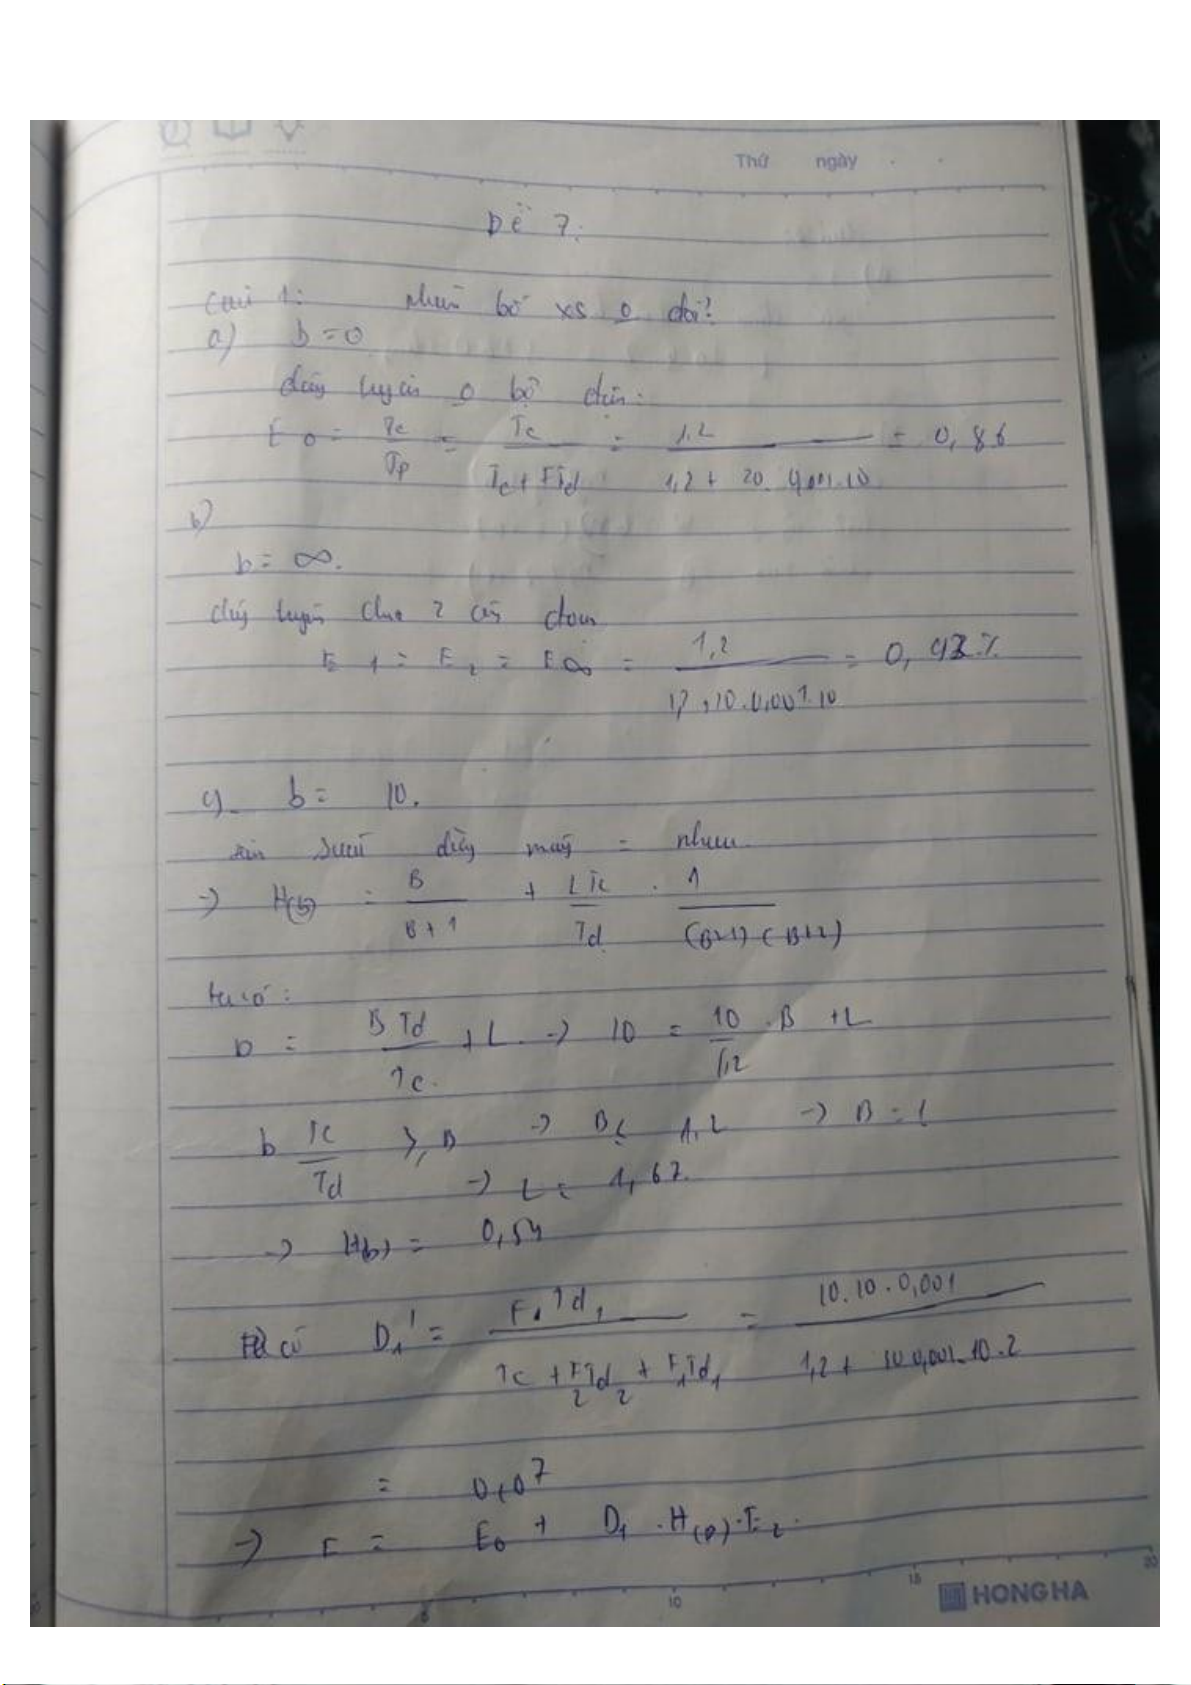 Thứ ngày
Đề 7:
Câu 1: phân bố xs o đổi?
a) b = 0
dây truyền o bộ đệm:
E0 = Tc/Tp = Tc/(Tc + FTd) = 1,2/(1,2 + 20. 0,001.10) = 0,86
b)
b = ∞.
dây truyền chia 2 công đoạn
E1 = E2 = E∞ = 1,2/(1,2 + 10.0,001.10) = 0,93 %
c) b = 10.
suất dây máy = nhau
-> H(b) = B/(B+1) + L Tc/Td . 1/((B+1)(B+2))
ta có:
b = B Td/Tc + L -> 10 = 10/1,2 . B + L
b Tc/Td ≥ B -> B ≤ 1,2 -> B = 1
-> L = 1,67.
-> H(b) = 0,54
Ta có D1' = F1Td1/(Tc + F2Td2 + F1Td1) = 10.10.0,001/(1,2 + 10.0,001.10.2)
= 0,07
-> E = E0 + D1'.H(b).E2.
5 10 15 20
HONG HA